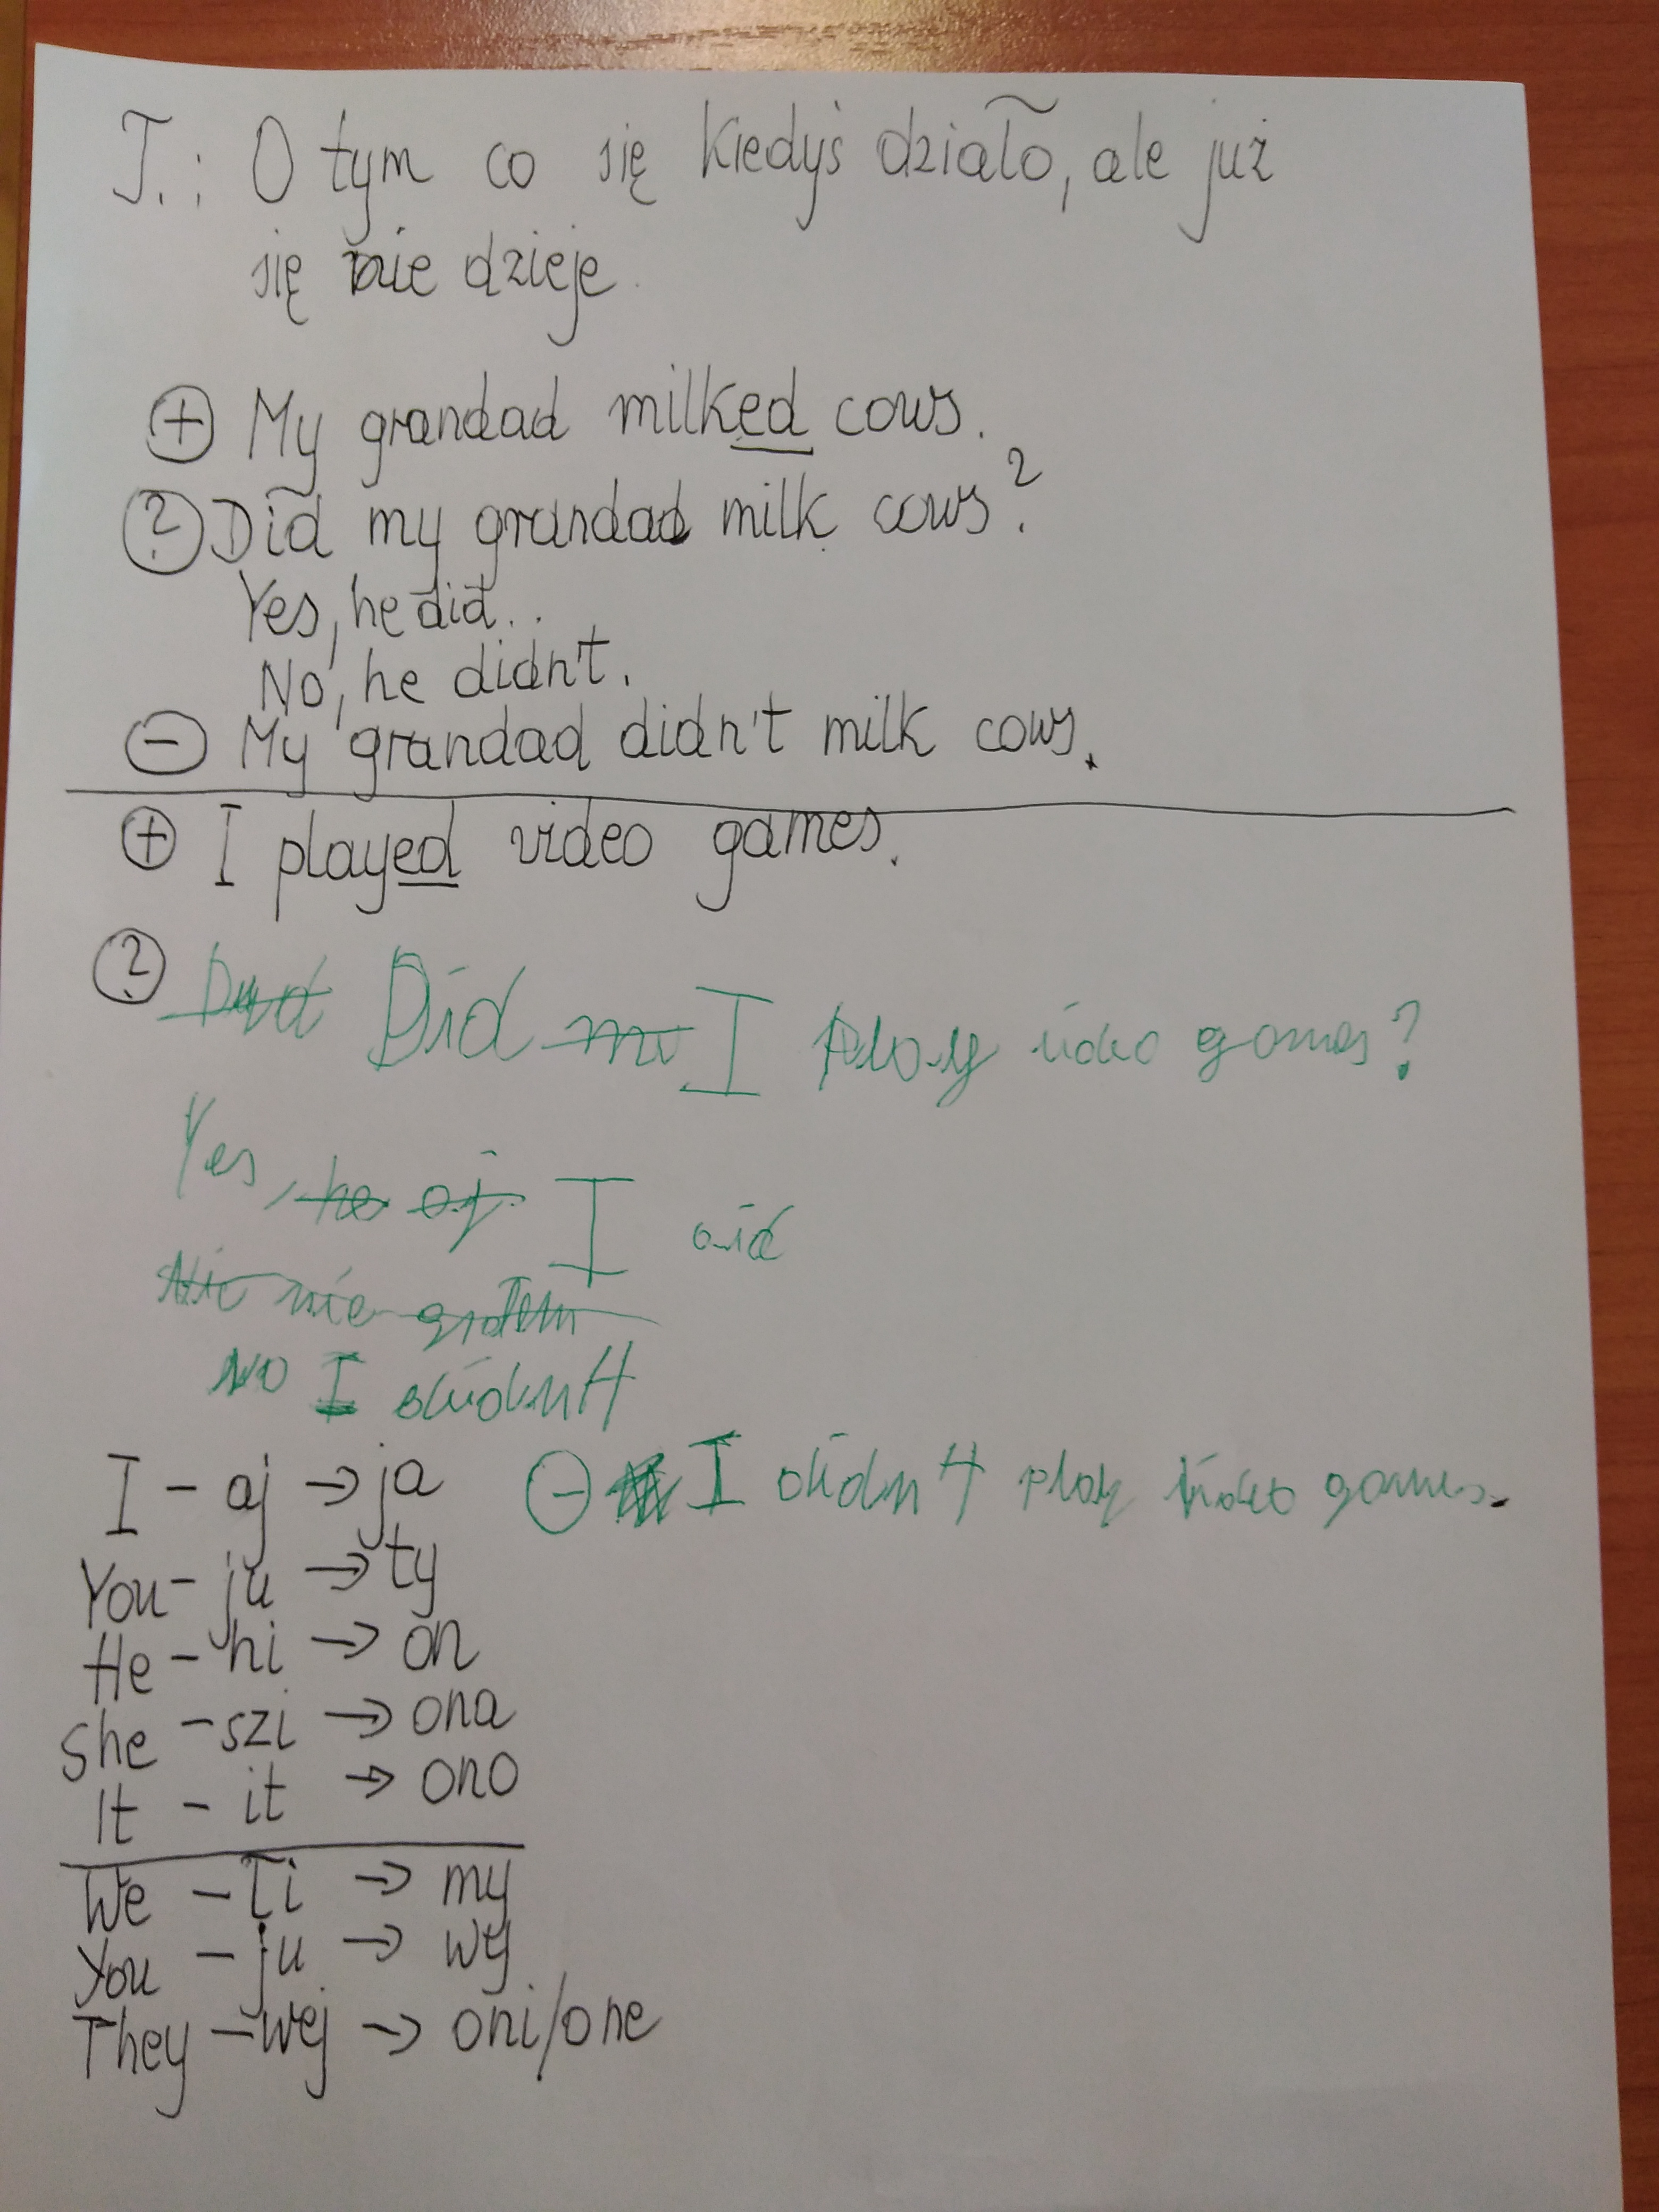 T.: O tym co się kiedyś działo, ale już
się nie dzieje.
+ My grandad milked cows.
? Did my grandad milk cows?
Yes, he did..
No, he didn't.
- My grandad didn't milk cows.
+ I played video games.
? Did I play video games?
Yes, he I did
Nie nie grałem
NO I didn't
- I didn't play video games.
I - aj → ja
You - ju → ty
He - hi → on
She - szi → ona
It - it → ono
We - łi → my
You - ju → wy
They - wej → oni/one